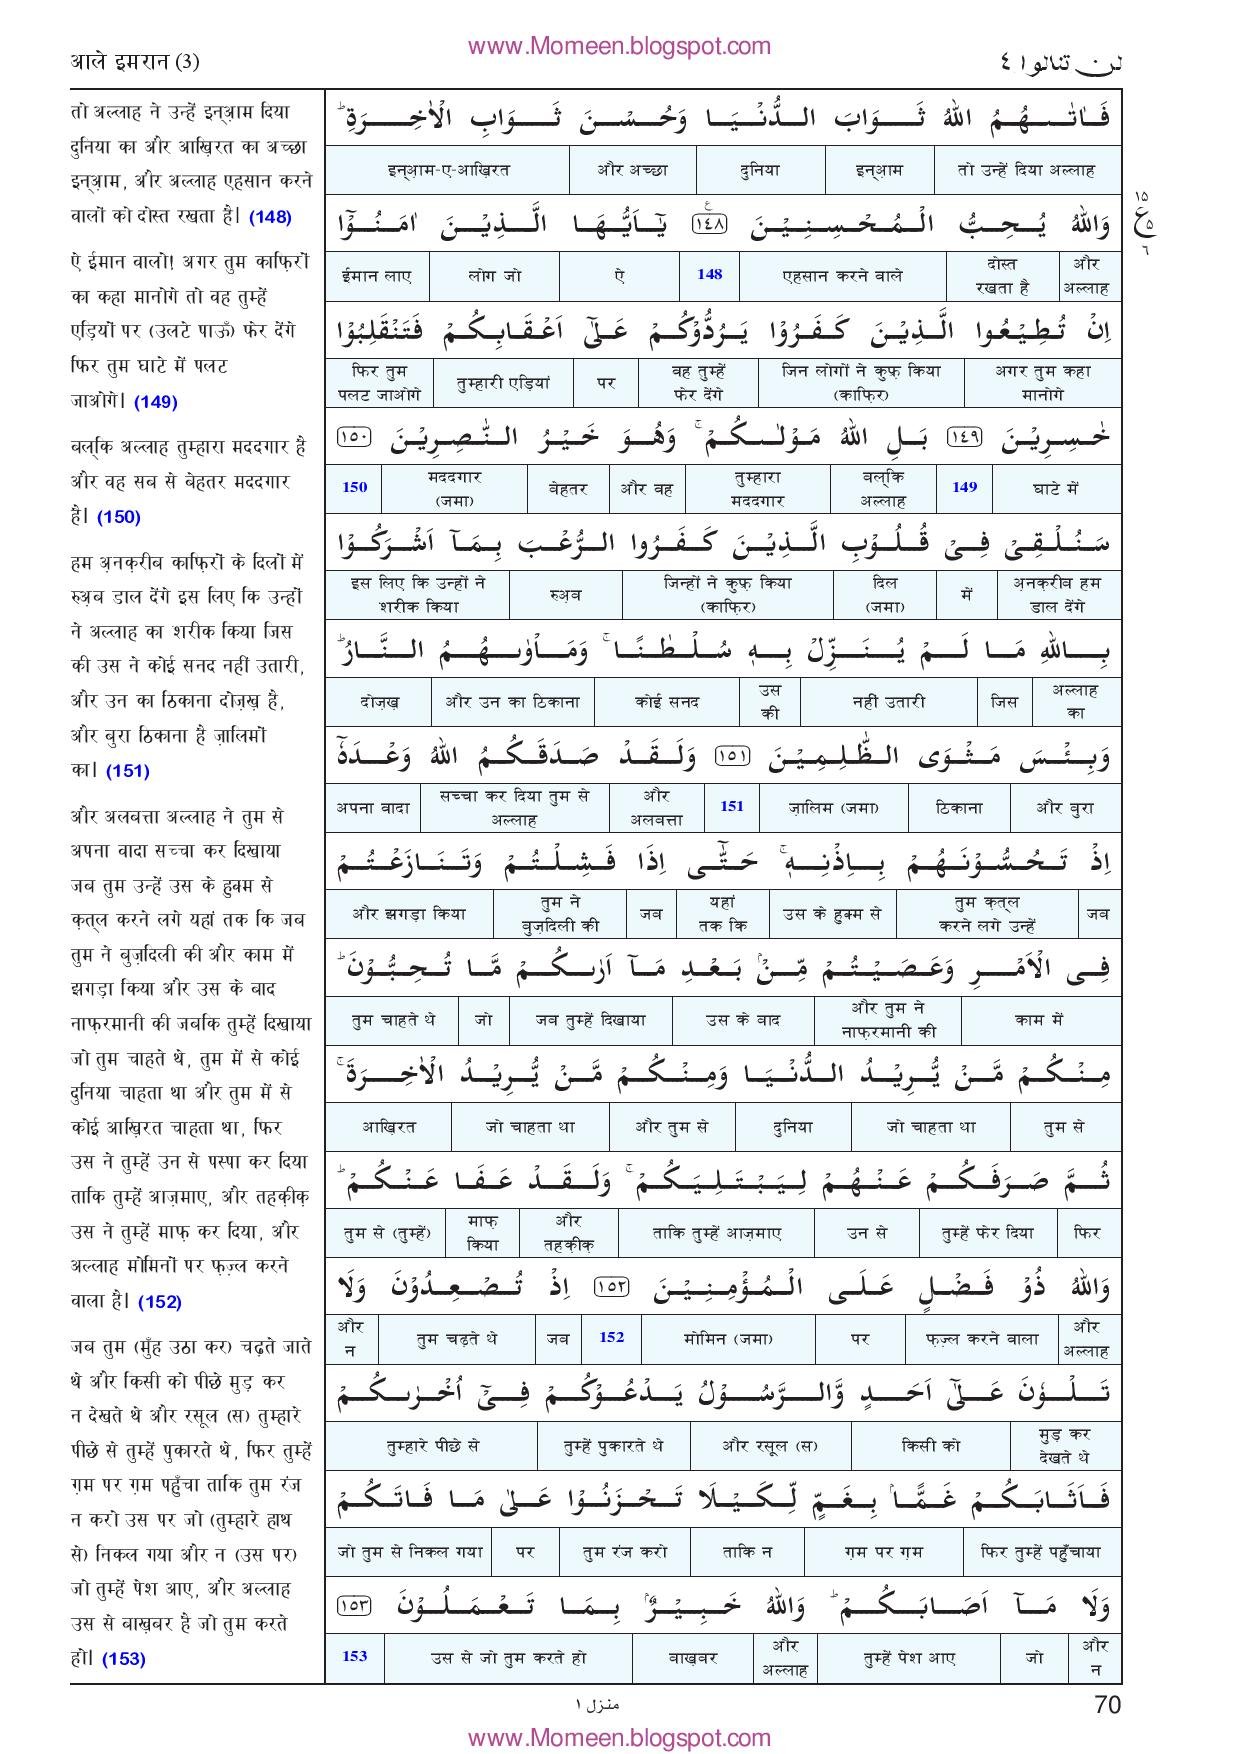 www.Momeen.blogspot.com
आले इमरान (3)
لن تنالوا ٤
तो अल्लाह ने उन्हें इन्आ़म दिया
दुनिया का और आख़िरत का अच्छा
इन्आ़म, और अल्लाह एहसान करने
वालों को दोस्त रखता है। (148)
ऐ ईमान वालो! अगर तुम काफ़िरों
का कहा मानोगे तो वह तुम्हें
एड़ियों पर (उलटे पाऊँ) फेर देंगे
फिर तुम घाटे में पलट
जाओगे। (149)
बल्कि अल्लाह तुम्हारा मददगार है
और वह सब से बेहतर मददगार
है। (150)
हम अ़नक़रीब काफ़िरों के दिलों में
रुअ़ब डाल देंगे इस लिए कि उन्हों
ने अल्लाह का शरीक किया जिस
की उस ने कोई सनद नहीं उतारी,
और उन का ठिकाना दोज़ख़ है,
और बुरा ठिकाना है ज़ालिमों
का। (151)
और अलबत्ता अल्लाह ने तुम से
अपना वादा सच्चा कर दिखाया
जब तुम उन्हें उस के हुक्म से
क़त्ल करने लगे यहां तक कि जब
तुम ने बुज़दिली की और काम में
झगड़ा किया और उस के बाद
नाफ़रमानी की जबकि तुम्हें दिखाया
जो तुम चाहते थे, तुम में से कोई
दुनिया चाहता था और तुम में से
कोई आख़िरत चाहता था, फिर
उस ने तुम्हें उन से पस्पा कर दिया
ताकि तुम्हें आज़माए, और तहक़ीक़
उस ने तुम्हें माफ़ कर दिया, और
अल्लाह मोमिनों पर फ़ज़्ल करने
वाला है। (152)
जब तुम (मुँह उठा कर) चढ़ते जाते
थे और किसी को पीछे मुड़ कर
न देखते थे और रसूल (स) तुम्हारे
पीछे से तुम्हें पुकारते थे, फिर तुम्हें
ग़म पर ग़म पहुँचा ताकि तुम रंज
न करो उस पर जो (तुम्हारे हाथ
से) निकल गया और न (उस पर)
जो तुम्हें पेश आए, और अल्लाह
उस से बाख़बर है जो तुम करते
हो। (153)
فَاٰتٰىهُمُ اللّٰهُ ثَوَابَ الدُّنْيَا وَحُسْنَ ثَوَابِ الْاٰخِرَةِ ؕ
इन्आ़म-ए-आख़िरत और अच्छा दुनिया इन्आ़म तो उन्हें दिया अल्लाह
وَاللّٰهُ يُحِبُّ الْمُحْسِنِيْنَ ١٤٨ يٰٓاَيُّهَا الَّذِيْنَ اٰمَنُوْٓا
١٥
ع ٥
٦
ईमान लाए लोग जो ऐ 148 एहसान करने वाले दोस्त रखता है और अल्लाह
اِنْ تُطِيْعُوا الَّذِيْنَ كَفَرُوْا يَرُدُّوْكُمْ عَلٰٓى اَعْقَابِكُمْ فَتَنْقَلِبُوْا
फिर तुम पलट जाओगे तुम्हारी एड़ियां पर वह तुम्हें फेर देंगे जिन लोगों ने कुफ़ किया (काफ़िर) अगर तुम कहा मानोगे
خٰسِرِيْنَ ١٤٩ بَلِ اللّٰهُ مَوْلٰىكُمْ ۚ وَهُوَ خَيْرُ النّٰصِرِيْنَ ١٥٠
150 मददगार (जमा) बेहतर और वह तुम्हारा मददगार बल्कि अल्लाह 149 घाटे में
سَنُلْقِيْ فِيْ قُلُوْبِ الَّذِيْنَ كَفَرُوا الرُّعْبَ بِمَآ اَشْرَكُوْا
इस लिए कि उन्हों ने शरीक किया रुअ़ब जिन्हों ने कुफ़ किया (काफ़िर) दिल (जमा) में अ़नक़रीब हम डाल देंगे
بِاللّٰهِ مَا لَمْ يُنَزِّلْ بِهٖ سُلْطٰنًا ۚ وَمَاْوٰىهُمُ النَّارُ ؕ
दोज़ख़ और उन का ठिकाना कोई सनद उस की नहीं उतारी जिस अल्लाह का
وَبِئْسَ مَثْوَى الظّٰلِمِيْنَ ١٥١ وَلَقَدْ صَدَقَكُمُ اللّٰهُ وَعْدَهٗٓ
अपना वादा सच्चा कर दिया तुम से अल्लाह और अलबत्ता 151 ज़ालिम (जमा) ठिकाना और बुरा
اِذْ تَحُسُّوْنَهُمْ بِاِذْنِهٖ ۚ حَتّٰٓى اِذَا فَشِلْتُمْ وَتَنَازَعْتُمْ
और झगड़ा किया तुम ने बुज़दिली की जब यहां तक कि उस के हुक्म से तुम क़त्ल करने लगे उन्हें जब
فِى الْاَمْرِ وَعَصَيْتُمْ مِّنْۢ بَعْدِ مَآ اَرٰىكُمْ مَّا تُحِبُّوْنَ ؕ
तुम चाहते थे जो जब तुम्हें दिखाया उस के बाद और तुम ने नाफ़रमानी की काम में
مِنْكُمْ مَّنْ يُّرِيْدُ الدُّنْيَا وَمِنْكُمْ مَّنْ يُّرِيْدُ الْاٰخِرَةَ ۚ
आख़िरत जो चाहता था और तुम से दुनिया जो चाहता था तुम से
ثُمَّ صَرَفَكُمْ عَنْهُمْ لِيَبْتَلِيَكُمْ ۚ وَلَقَدْ عَفَا عَنْكُمْ ؕ
तुम से (तुम्हें) माफ़ किया और तहक़ीक़ ताकि तुम्हें आज़माए उन से तुम्हें फेर दिया फिर
وَاللّٰهُ ذُوْ فَضْلٍ عَلَى الْمُؤْمِنِيْنَ ١٥٢ اِذْ تُصْعِدُوْنَ وَلَا
और न तुम चढ़ते थे जब 152 मोमिन (जमा) पर फ़ज़्ल करने वाला और अल्लाह
تَلْوٗنَ عَلٰٓى اَحَدٍ وَّالرَّسُوْلُ يَدْعُوْكُمْ فِيْٓ اُخْرٰىكُمْ
तुम्हारे पीछे से तुम्हें पुकारते थे और रसूल (स) किसी को मुड़ कर देखते थे
فَاَثَابَكُمْ غَمًّاۢ بِغَمٍّ لِّكَيْلَا تَحْزَنُوْا عَلٰى مَا فَاتَكُمْ
जो तुम से निकल गया पर तुम रंज करो ताकि न ग़म पर ग़म फिर तुम्हें पहुँचाया
وَلَا مَآ اَصَابَكُمْ ؕ وَاللّٰهُ خَبِيْرٌۢ بِمَا تَعْمَلُوْنَ ١٥٣
153 उस से जो तुम करते हो बाख़बर और अल्लाह तुम्हें पेश आए जो और न
منزل ١
70
www.Momeen.blogspot.com